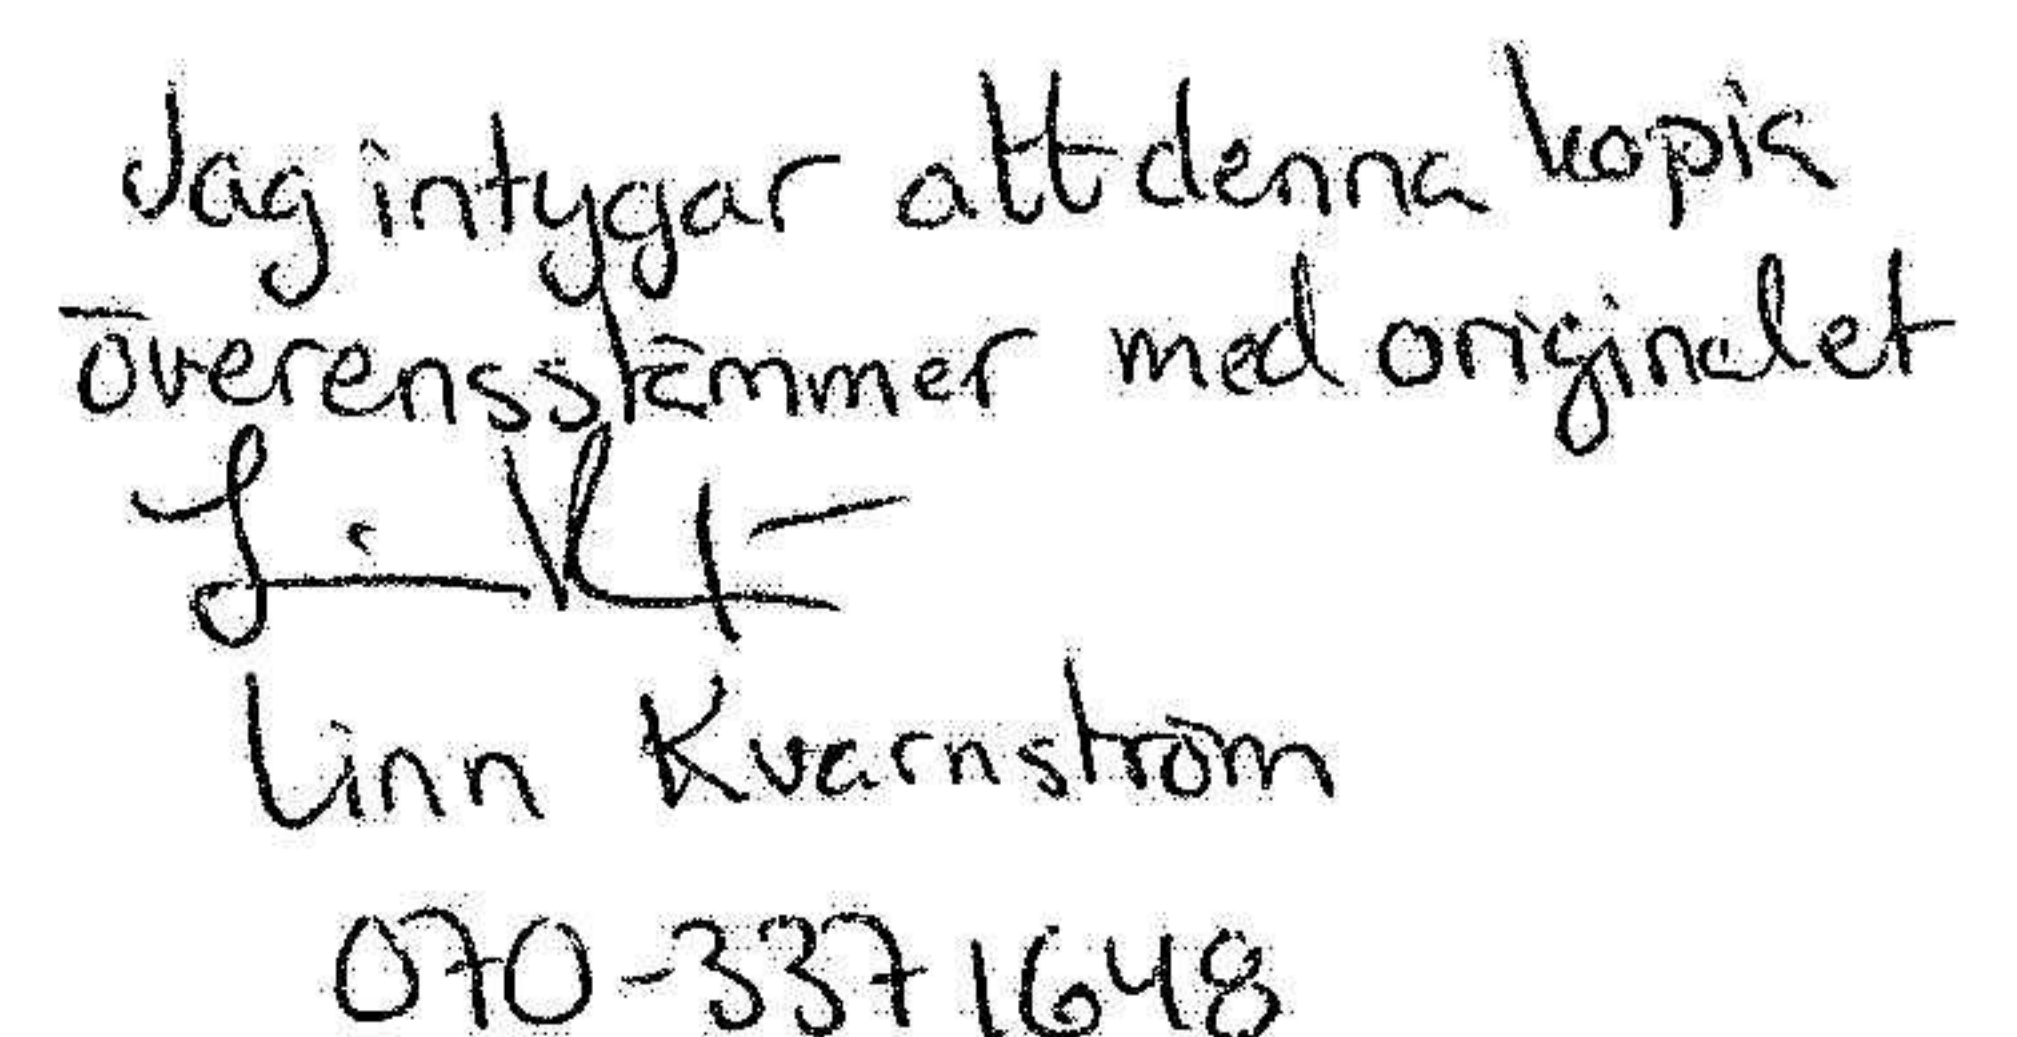 Jag intygar att denna kopia
överensstämmer med originalet
Linn Kvarnström
070-337 1648